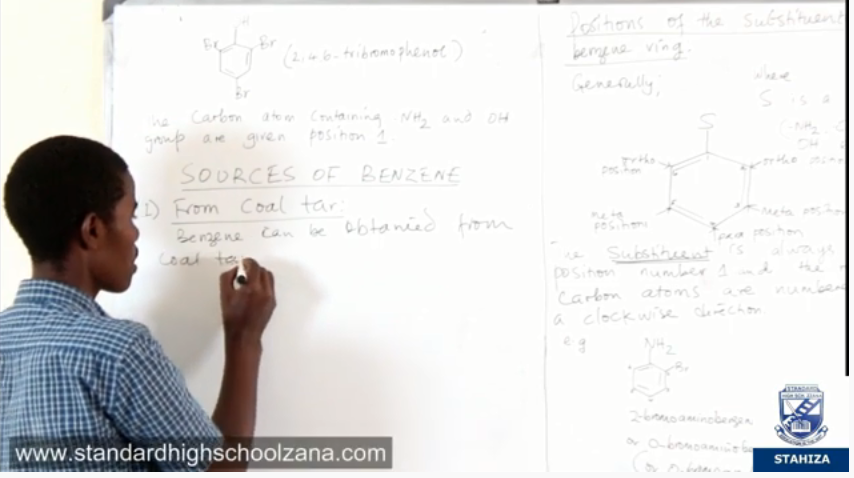 H
Br
Br
Br
(2,4,6-tribromophenol)
The Carbon atom Containing -NH2 and OH
group are given position 1.
SOURCES OF BENZENE
1) From Coal tar:
Benzene Can be Obtanied from
Coal ta
Positions of the substituent
benzene ring.
Generally;
where
S is a
(-NH2,
OH
S
ortho
position
ortho
meta
position
meta position
para position
Substituent is always
position number 1 and the
Carbon atoms are numbere
a clockwise direction.
e.g
NH2
Br
2-bromoaminobenzen
or o-bromoaminobe
(or o-bromo
www.standardhighschoolzana.com
STANDARD
HIGH SCH. ZANA
STAHIZA